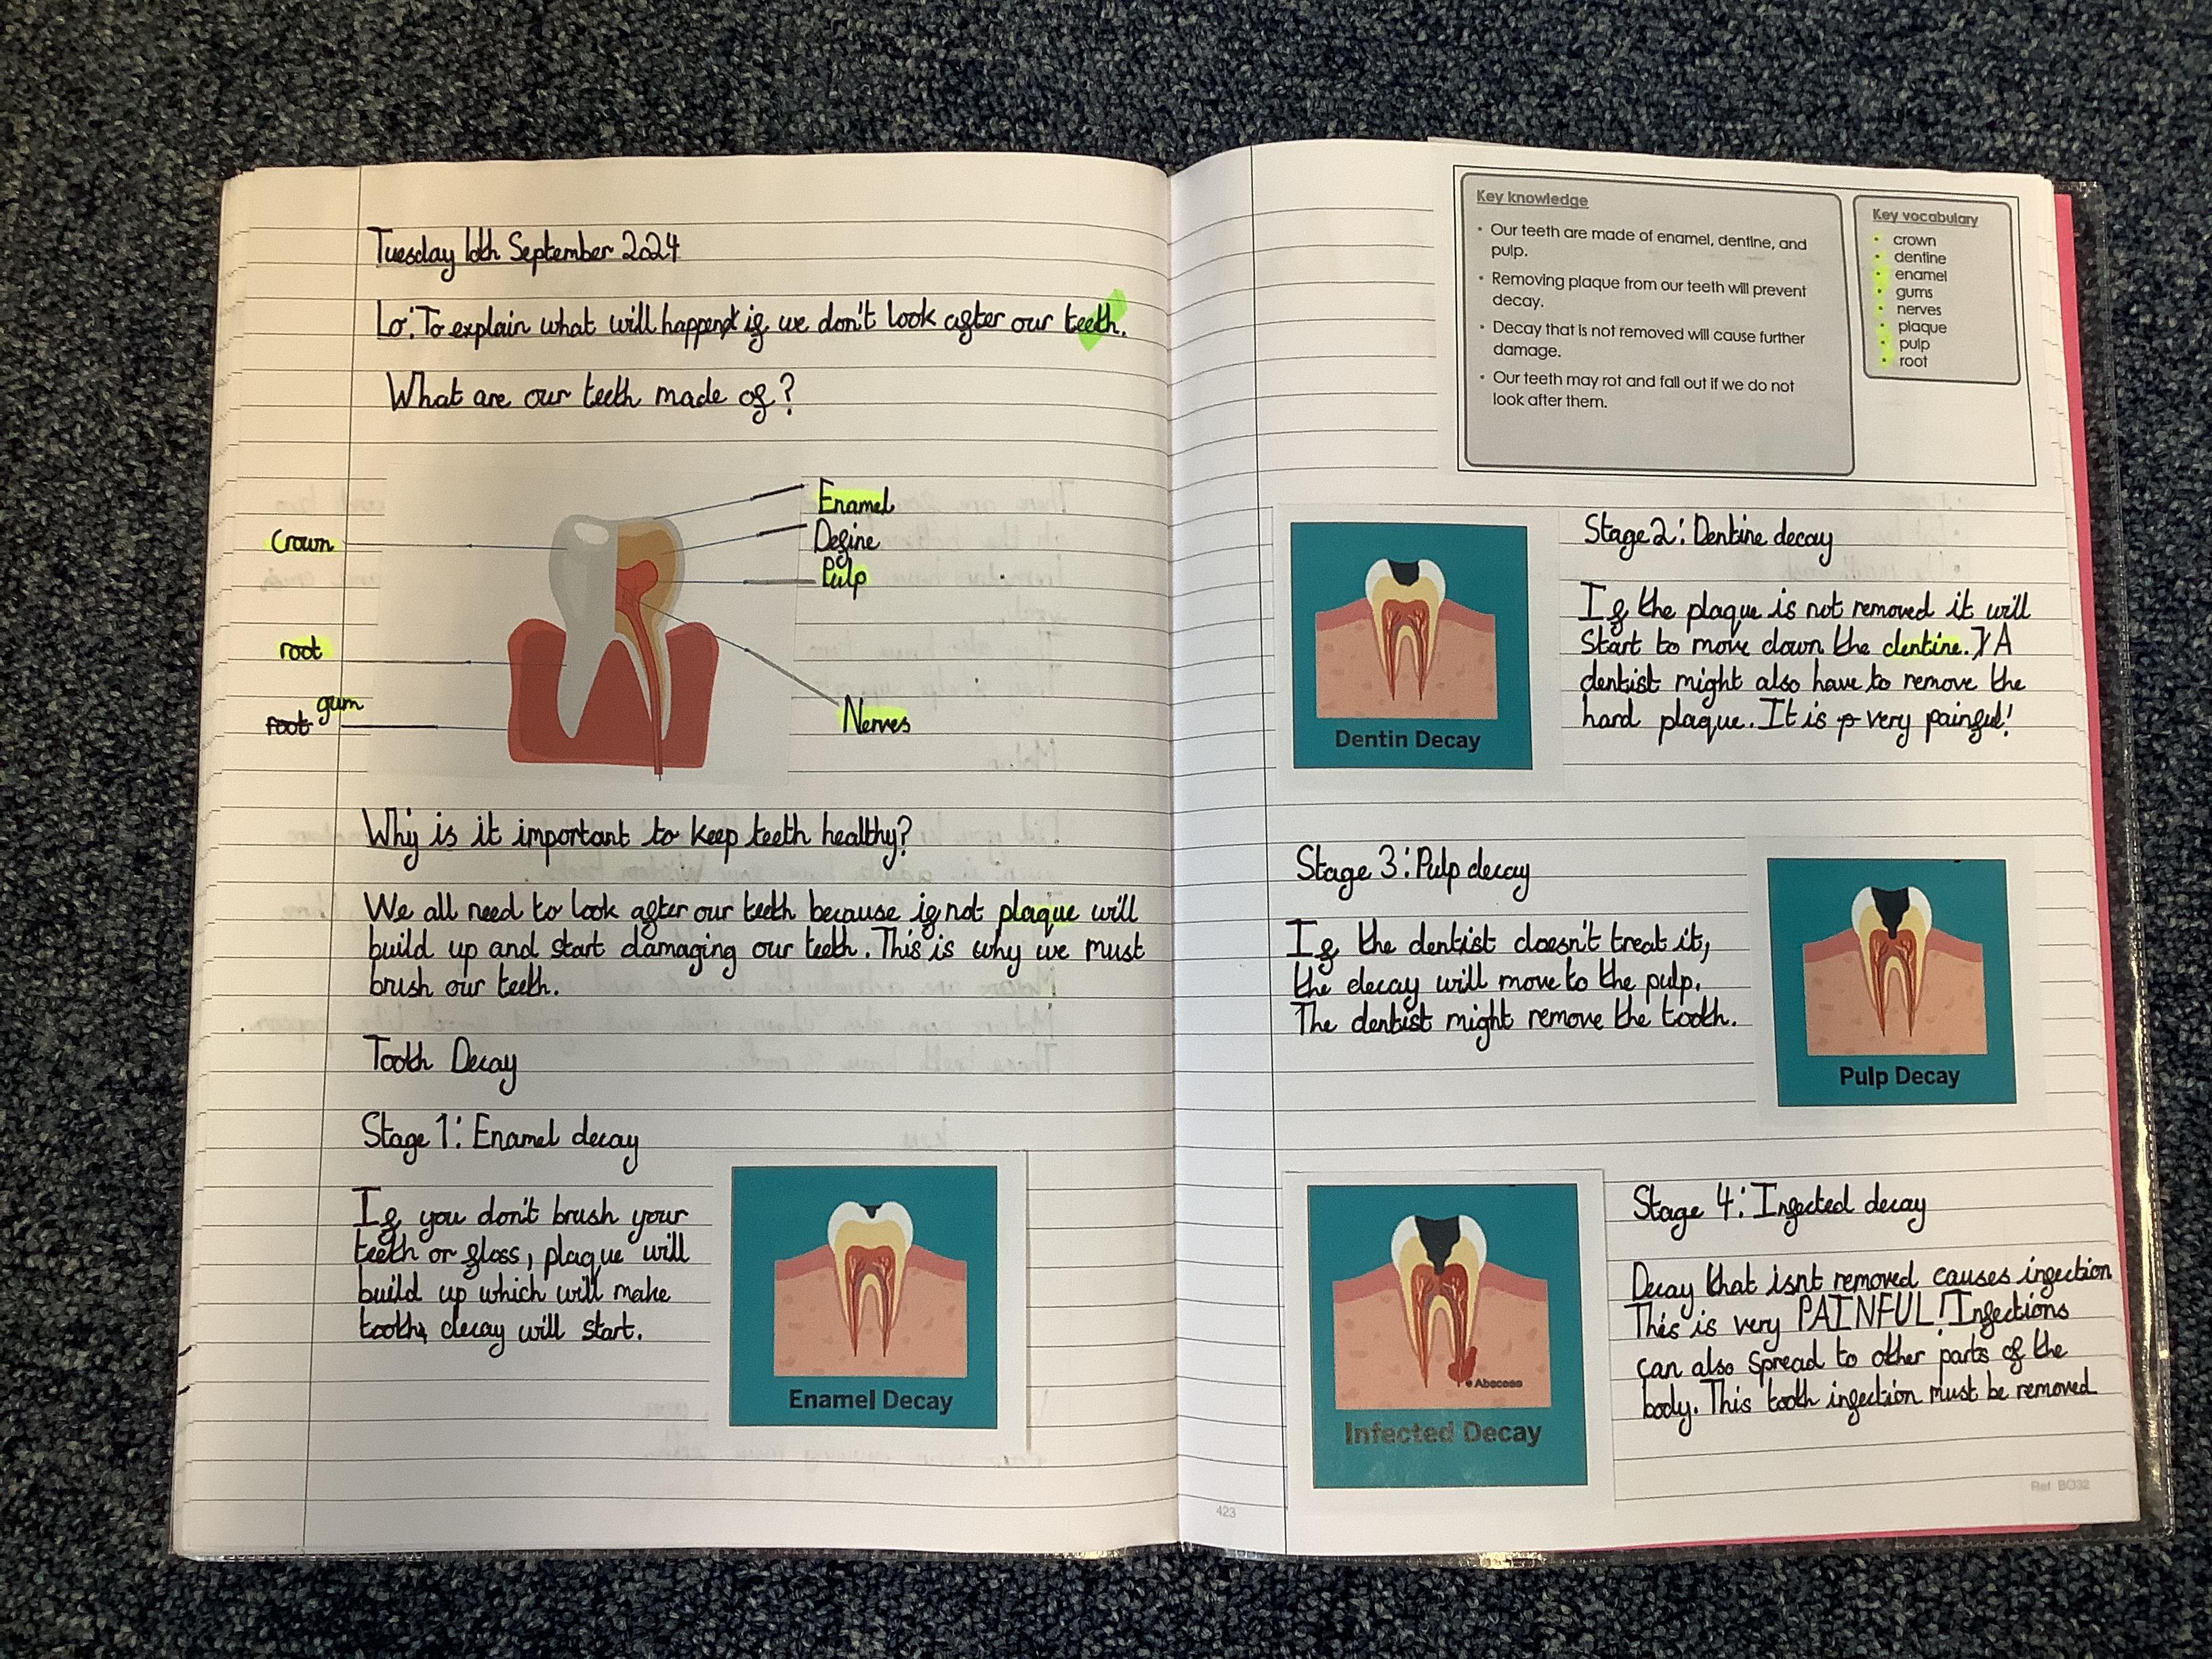 Tuesday 10th September 2024
Lo: To explain what will happen if we don't look after our teeth.
What are our teeth made of?
Enamel
Crown
Define
Pulp
root
gum
root
Nerves
Why is it important to keep teeth healthy?
We all need to look after our teeth because if not plaque will
build up and start damaging our teeth. This is why we must
brush our teeth.
Tooth Decay
Stage 1: Enamel decay
If you don't brush your
teeth or floss, plaque will
build up which will make
tooth decay will start.
Enamel Decay
Key knowledge
• Our teeth are made of enamel, dentine, and
pulp.
• Removing plaque from our teeth will prevent
decay.
• Decay that is not removed will cause further
damage.
• Our teeth may rot and fall out if we do not
look after them.
Key vocabulary
• crown
• dentine
• enamel
• gums
• nerves
• plaque
• pulp
• root
Stage 2: Dentine decay
If the plaque is not removed it will
start to move down the dentine. A
dentist might also have to remove the
hard plaque. It is very painful!
Dentin Decay
Stage 3: Pulp decay
If the dentist doesn't treat it,
the decay will move to the pulp.
The dentist might remove the tooth.
Pulp Decay
Stage 4: Infected decay
Decay that isnt removed causes infection
This is very PAINFUL! Infections
can also spread to other parts of the
body. This tooth infection must be removed
Abscess
Infected Decay
423
Ref: BO32